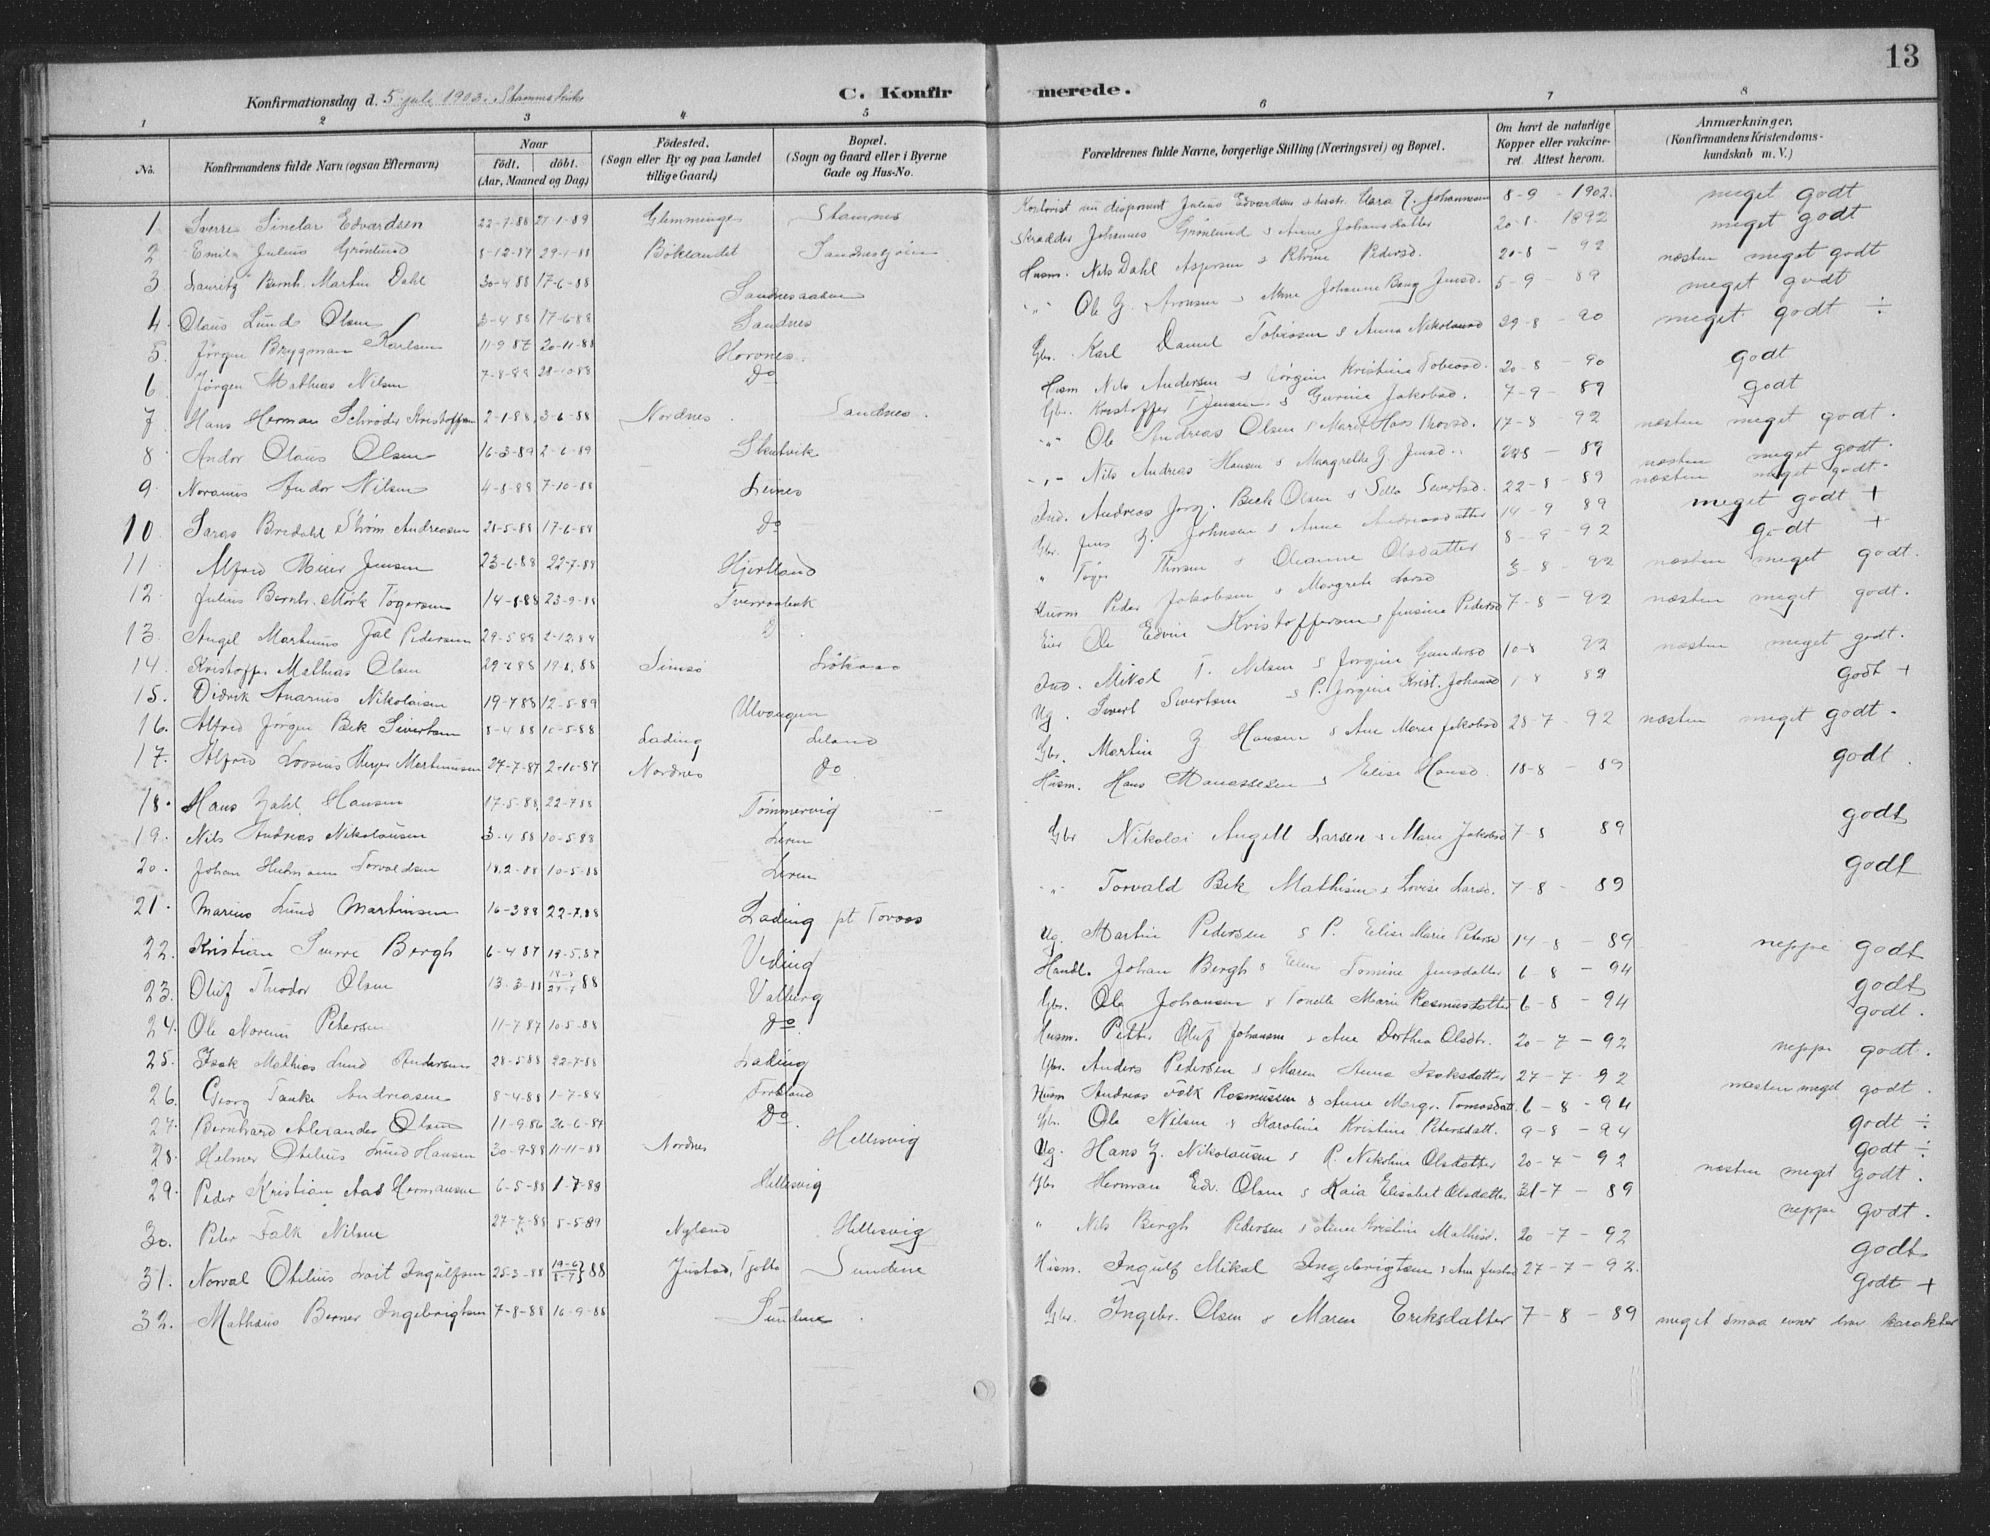 13
Konfirmationsdag d. 5 juli 1903. Stamnes kirke
C. Konfirmerede.
1 2 3 4 5 6 7 8
No. Konfirmandens fulde Navn (ogsaa Efternavn) Naar födt. döbt. (Aar, Maaned og Dag.) Födested. (Sogn eller By og paa Landet tillige Gaard.) Bopæl. (Sogn og Gaard eller i Byerne Gade og Hus-No. Forældrenes fulde Navne, borgerlige Stilling (Næringsvei) og Bopæl. Om havt de naturlige Kopper eller vakcineret. Attest herom. Anmærkninger. (Konfirmandens Kristendomskundskab m. V.)
1 Sverre Sinclar Edvardsen 22-7-88 27-1-89 Glemminge Stamnes Julius Edvardsen & Clara Z. Johannesen 8-9-1902. meget godt
2 Emil Julius Grönlund 8-12-87 29-1-88 Böklandet Sandnessjöen Skrædder Johannes Grönlund & Anne Johansdatter 20-1-1892 meget godt
3 Lauritz Bernh. Martin Dahl 30-4 88 17-6-88 Sandnesaasen Husm. Nils Dahl Aspersen & Pedersd. 20-8-92 næsten meget godt
4 Olaus Lund Olsen 3-4 88 17-6-88 Sandnes " Ole Z. Aronsen & Anne Johanne Bang Jensd. 5-9 89 meget godt
5. Jörgen Brygman Karlsen 11-9 87 20-11-88 Horvnes Gbr. Karl Daniel Tobiassen & Anna Nikolaisd 29-8-90 meget godt ÷
6 Jörgen Mathias Nilsen 7-8-88 28-10-88 Do Husm Nils Andersen & Jörgine Kristine Tobiasd. 20-8-90 godt
7 Hans Herman Schröder Kristoffersen 2-1-88 3-6-88 Nordnes Sandnes. Gbr. Kristoffer T Jensen & Gurine Jakobsd. 7-9-89 godt
8 Andor Olaus Olsen 16-3-89 2-6-89 Skutvik " Ole Andreas Olsen & Marit Hoas Thorsd. 17-8-92 næsten meget godt.
9 Noranus Andor Nilsen 4-8-88 7-10-88 Leines " Nils Andreas Hansen & Margrethe J. Jensd. 24-8-89 næsten meget godt.
10 Saras Bredahl Ström Andreasen 21-5-88 17-6-88 Do Ind. Andreas Jörg. Beck Olsen & Silla Sivertsd. 22-8-89 næsten meget godt.
11 Alfred Meier Jensen 23-6-88 22-7-88 Hjertland Gbr. Jens Z. Johnsen & Anne Andreasdatter 14-9 89 meget godt +
12. Julius Bernh. Mörk Tögersen 14-8-88 23-9-88 Tverraabak " Töger Thorsen & Oleanne Olsdatter 8-9-92 godt +
13. Angel Martinus Jal Pedersen 29-5 88 2-12 88 D Husm Peder Jakobsen & Margrete Larsd 3-8-92 næsten meget godt.
14. Kristoffer Mathias Olsen 29-6 88 19-8, 88 Simsö Lökaas Eier Ole Edvin Kristoffersen & Jensine Pedersd 7-8-92 næsten meget godt.
15. Didrik Anarius Nikolaisen 19-7 88 12-5-89 Ulvangen Ind. Mikal T. Nilsen & Jörgine Gundersd 10-8 92 næsten meget godt.
16. Alfred Jörgen Bek Sivertsen 8-4 88 10-5-88 Lading Leland Ug. Sivert Sivertsen & P. Jörgine Krist. Johansd 1-8 89 godt +
17. Alfred Martinusen 27-7-87 2-10-87 Nordnes Do Gbr. Martin Z Hansen & Ane Marie Jakobsd 28-7-92 næsten meget godt.
18. Hans Zahl Hansen 17-5-88 22-7 88 Tömmervig Husm. Hans Manassesen & Elise Hansd 18-8-89 godt
19. Nils Andreas Nikolausen 3-4 88 10-5-88 Leren Gbr Nikolai Angell Larsen & Marie Jakobsd 7-8 89 godt
20. Johan Torvaldsen 18.2-88 10-5-88 Leren " Torvald Bek Mathisen & Lovise Larsd. 7-8-89 godt
21. Marius Lund Martinsen 16-3 88 22-7.88 Lading pt Tovaas Ug. Martin Pedersen & P. Elise Marie Petersd 14-8-89 neppe godt
22. Kristian Sverre Bergh 6-4 87 19-5.87 Veding Handl. Johan Bergh & Tomine Jensdatter 6-8-94 godt
23. Oluf Theodor Olsen 13-3-88 88 Valberg Gbr. Ole Johansen & Tonette Marie Rasmusdatter 6-8-94 godt.
24. Ole Norenus Petersen 11-7-87 10-5-88 Do Husm. Petter Oluf Johansen & Ane Dorthea Olsdtr. 20-7-92 neppe godt.
25. Isak Mathias Lund Andersen 28-5 88 22-7-88 Lading Gbr. Anders Pedersen & Maren Anna Isaksdatter 27-7-92 næsten meget godt.
26. Georg Tanke Andreasen 8-4-88 1-7-88 Forland Husm Andreas Falk Rasmussen & Anne Margr. Tomasdatt. 6-8-94 godt ÷
27. Bernhard Alexander Olsen 11-9-86 26-6-87 Do Gbr. Ole Nilsen & Karoline Kristine Petersdatt. 9-8-94 godt ÷
28. Helmer Otelius Lund Hansen 30-9-88 11-11-88 Nordnes Hellesvig Ug. Hans Z. Nikolausen & P. Nikoline Olsdatter 20-7-92 næsten meget godt.
29. Peder Kristian Aas Hermansen 6-5-88 1-7-88 Hellesvig Gbr Herman Edv. Olsen & Kaia Elisabet Olsdatter 31-7-89 neppe godt.
30. Peter Falk Nilsen 27-7-88 5-5-89 Nyland Hellesvig " Nils Bergh Pedersen & Anne Kristine Mathisd. 20-7-92 godt
31. Norval Otelius Loit Ingulfsen 25-3-88 19-6 8-7 } 88 Justad, Tjötta Sundene Husm. Ingulf Mikal Ingebrigtsen & Ane Justad 27-7-92. godt +
32. Mathæus Berner Ingebrigtsen 7-8-88 16-9-88 Sundene Gbr. Ingebr. Olsen & Maren Eriksdatter 7-8-89 meget smaa evner bra karakter